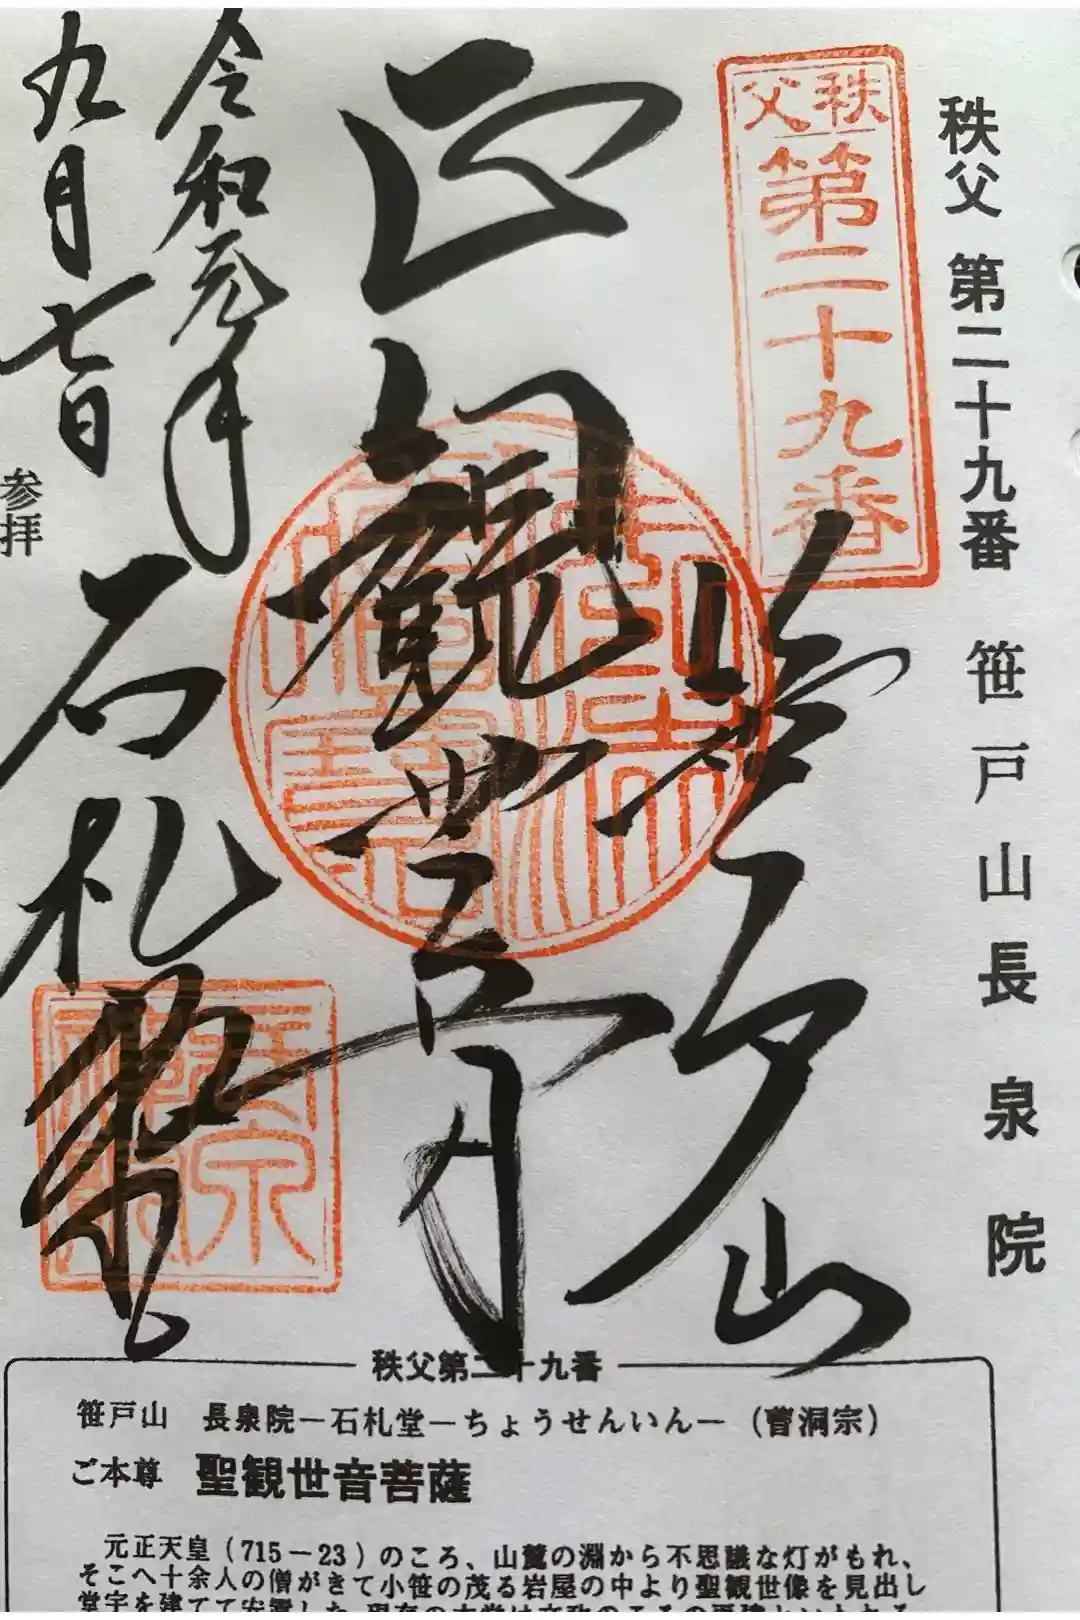 秩父 第二十九番 笹戸山長泉院
秩父
第二十九番
笹戸山
正観世音
石札堂
令和元年
九月七日
参拝
秩父第二十九番
笹戸山 長泉院―石札堂―ちょうせんいん―(曹洞宗)
ご本尊 聖観世音菩薩
元正天皇(715―23)のころ、山麓の淵から不思議な灯がもれ、
そこへ十余人の僧がきて小笹の茂る岩屋の中より聖観世像を見出し
堂宇を建てて安置した